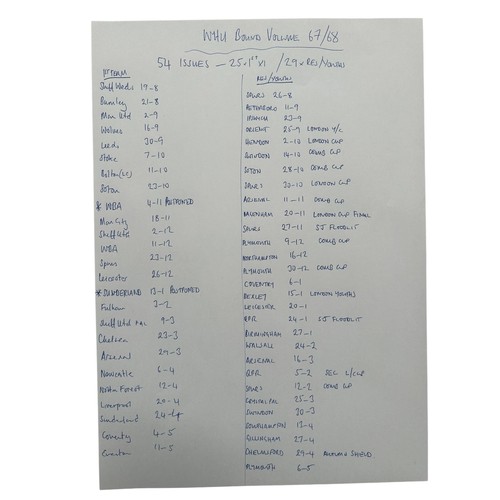 WHU BOUND VOLUME 67/68
54 ISSUES - 25 1ST XI / 29 x RES/YOUTHS
1ST TEAM
Sheff Weds 19-8
Burnley 21-8
Man Utd 2-9
Wolves 16-9
Leeds 30-9
Stoke 7-10
Bolton (LC) 11-10
Soton 23-10
* WBA 4-11 POSTPONED
Man City 18-11
Sheff Utd 2-12
WBA 11-12
Spurs 23-12
Leicester 26-12
* SUNDERLAND 13-1 POSTPONED
Fulham 3-2
Sheff Utd FAC 9-3
Chelsea 23-3
Arsenal 29-3
Newcastle 6-4
Nottm Forest 12-4
Liverpool 20-4
Sunderland 24-4
Coventry 4-5
Everton 11-5
RES/YOUTHS
SPURS 26-8
PETERBORO 11-9
IPSWICH 23-9
ORIENT 25-9 LONDON Y/C
HENDON 2-10 LONDON CUP
SWINDON 14-10 COMB CUP
SOTON 28-10 COMB CUP
SPURS 30-10 LONDON CUP
ARSENAL 11-11 COMB CUP
20-11 LONDON CUP FINAL
SPURS 27-11 SJ FLOODLIT
PLYMOUTH 9-12 COMB CUP
NORTHAMPTON 16-12
PLYMOUTH 30-12 COMB CUP
COVENTRY 6-1
BEXLEY 15-1 LONDON YOUTHS
LEICESTER 20-1
QPR 24-1 SJ FLOODLIT
BIRMINGHAM 27-1
WALSALL 24-2
ARSENAL 16-3
QPR 5-2 SEC L/CUP
SPURS 12-2 COMB CUP
CRYSTAL PAL 25-3
SWINDON 30-3
SOUTHAMPTON 13-4
GILLINGHAM 27-4
CHELMSFORD 29-4 SHIELD
PLYMOUTH 6-5